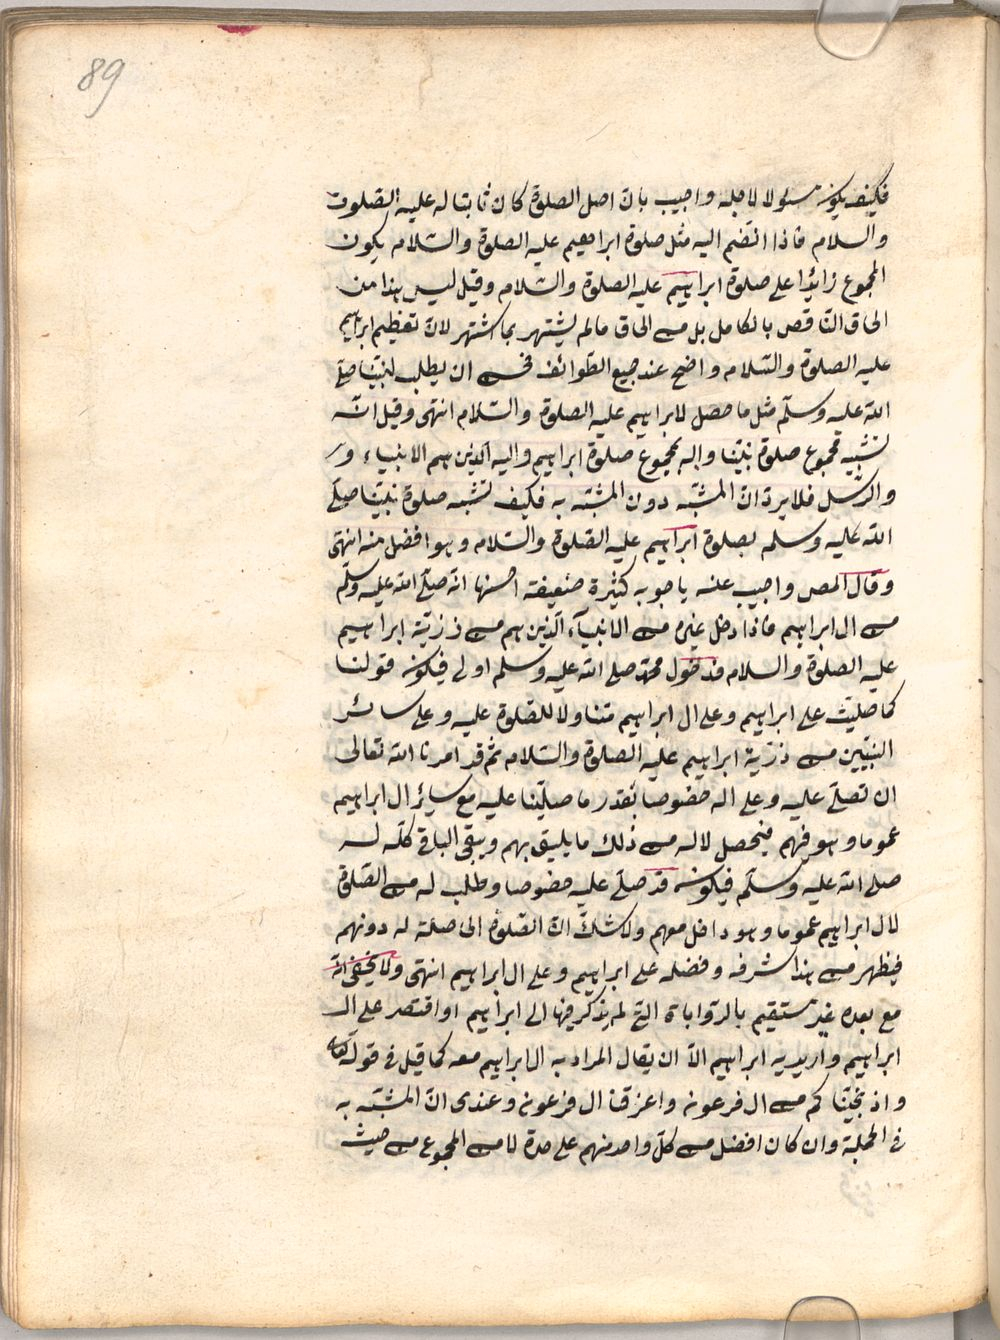 89
فكيف يكون مسئولا لاجله واجيب بان اصل الصلوة كان ثابتا له عليه الصلوت
والسلام فاذا انضم اليه مثل صلوة ابراهيم عليه الصلوة والسّلام يكون
المجموع زائدا على صلوة ابراهيم عليه الصلوة والسّلام وقيل ليس هذا من
الحاق النّاقص بالكامل بل من الحاق مالم يشتهر بما اشتهر لانّ تعظيم ابراهيم
عليه الصلوة والسّلام واضح عند جميع الطّوائف فحسن ان يطلب لنبيّنا صلّى
اللّه عليه وسلّم مثل ما حصل لابراهيم عليه الصلوة والسّلام انتهى وقيل انّه
تشبيه مجموع صلوة نبيّنا واله بمجموع صلوة ابراهيم واليه الّذين هم الانبياء و
والرّسل فلا يرد انّ المشبّه دون المشبّه به فكيف تشبه صلوة نبيّنا صلّى
اللّه عليه وسلم بصلوة ابراهيم عليه الصّلوة والسّلام وهو افضل منه انتهى
وقال المص واجيب عنه باجوبه كثيرة ضعيفة احسنها انّه صلّى اللّه عليه وسلّم
من ال ابراهيم فاذا دخل غيره من الانبيآء الّذين هم من ذرّيّة ابراهيم
عليه الصلوة والسلام فدخول محمّد صلى اللّه عليه وسلم اولى فيكون قولنا
كما صليّت على ابراهيم وعلى ال ابراهيم متناولا للصّلوة عليه وعلى سائر
النبيّين من ذرّية ابراهيم عليه الصلوة والسّلام ثم قد امرنا اللّه تعالى
ان نصلّى عليه وعلى اله خصوصا بقدر ما صلّينا عليه مع سائر ال ابراهيم
عموما وهو فيهم فيحصل لاله من ذلك ما يليق بهم ويبقى الباقى كلّه له
صلى اللّه عليه وسلّم فيكون قد صلّى عليه خصوصا وطلب له من الصّلوة
لال ابراهيم عموما وهو داخل معهم ولا شكّ انّ الصّلوة الحاصلة له دونهم
فيظهر من هذا شرفه وفضله على ابراهيم وعلى ال ابراهيم انتهى ولا يخفى انّه
مع بعده غير مستقيم بالرّوايات التى لم يذكر فيها ال ابراهيم او اقتصر على ال
ابراهيم واريد به ابراهيم الاّ ان يقال المراد به ال ابراهيم معه كما قيل فى قوله تعالى
واذ نجيّناكم من ال فرعون واغرقنا ال فرعون وعندى انّ المشبّه به
فى الجملة وان كان افضل من كلّ واحد منهم على حدة لا من المجموع من حيث